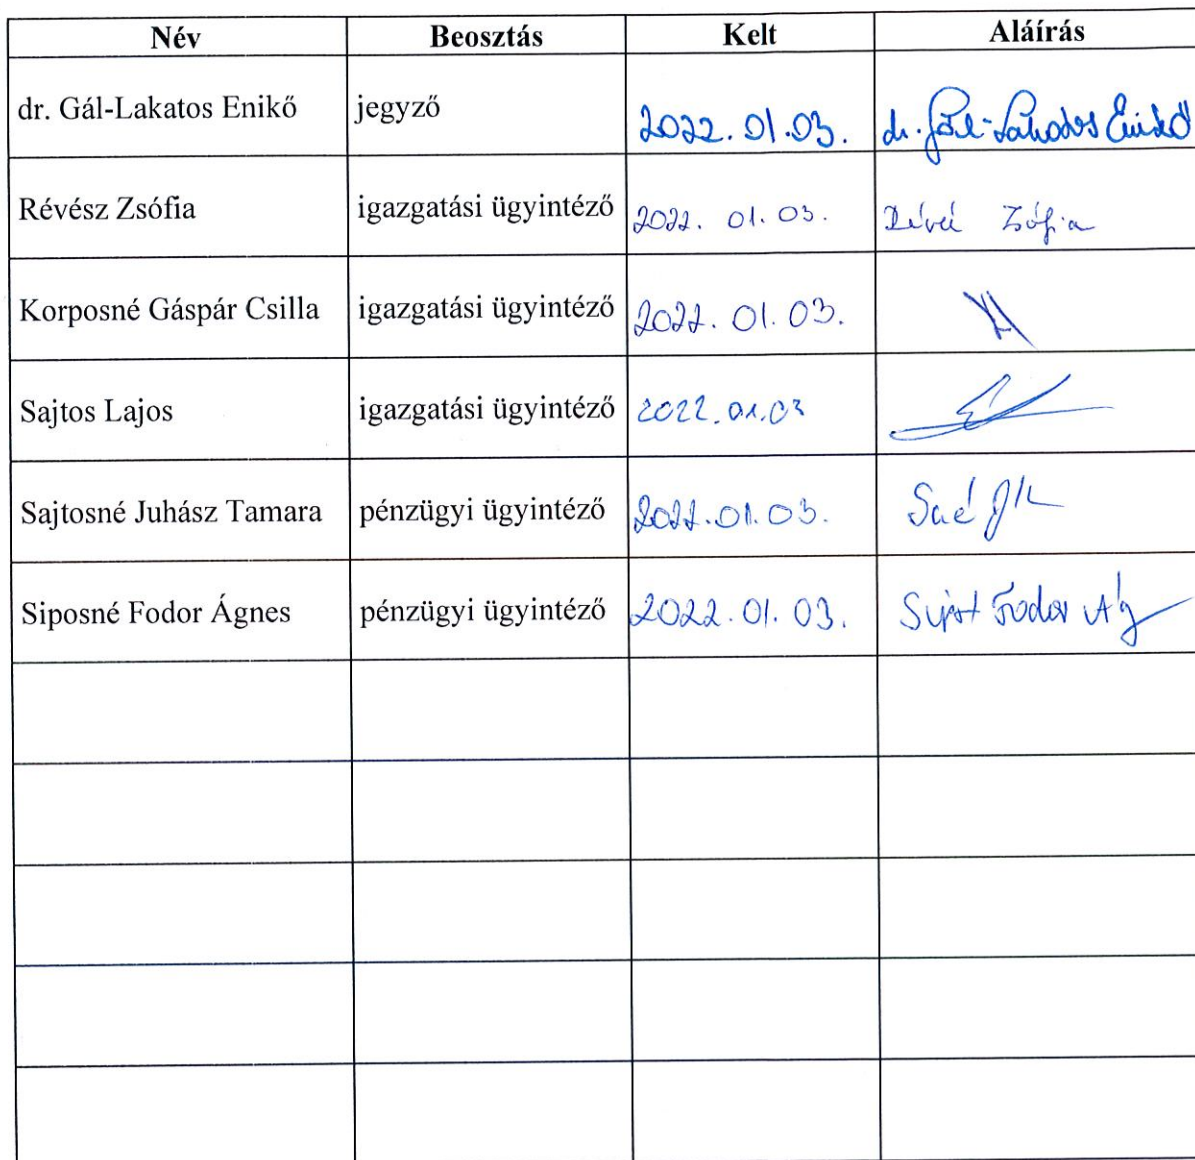 Név Beosztás Kelt Aláírás
dr. Gál-Lakatos Enikő jegyző 2022. 01.03. dr. Gál-Lakatos Enikő
Révész Zsófia igazgatási ügyintéző 2022. 01.03. Zsófia
Korposné Gáspár Csilla igazgatási ügyintéző 2022. 01.03.
Sajtos Lajos igazgatási ügyintéző 2022.01.03
Sajtosné Juhász Tamara pénzügyi ügyintéző 2022.01.03.
Siposné Fodor Ágnes pénzügyi ügyintéző 2022.01.03. Fodor Ág